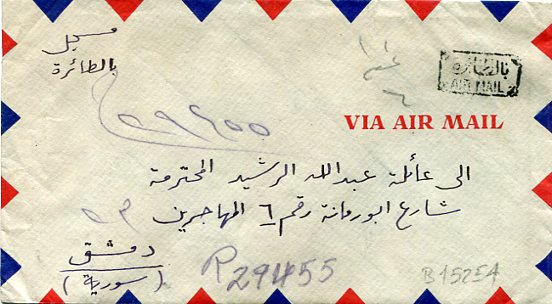 مسجل
بالطائرة
بالطائرة
AIR MAIL
VIA AIR MAIL
الى عائلة عبدالله الرشيد المحترمة
شارع ابورمانة رقم ٦ المهاجرين
دمشق
(سورية)
R29455
B15254